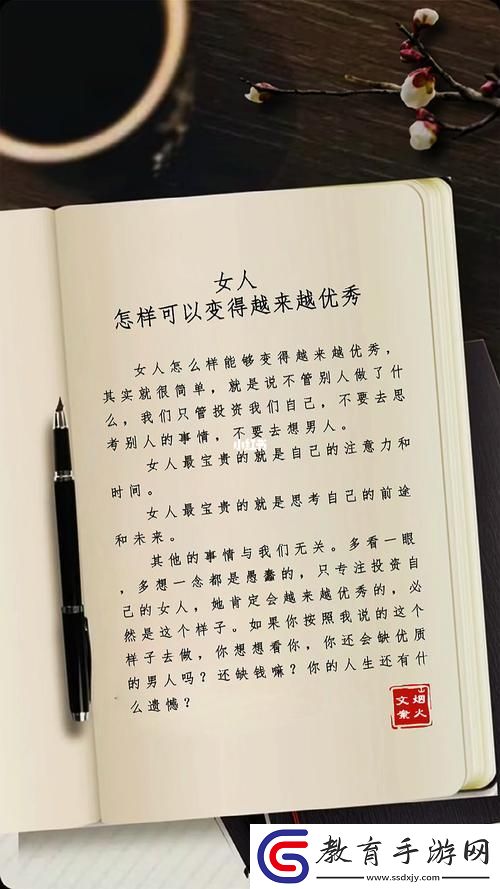 女人
怎样可以变得越来越优秀
女人怎么样能够变得越来越优秀，
其实就很简单，就是说不管别人做了什
么，我们只管投资我们自己，不要去思
考别人的事情，不要去想男人。
小红书
女人最宝贵的就是自己的注意力和
时间。
女人最宝贵的就是思考自己的前途
和未来。
其他的事情与我们无关。多看一眼
，多想一念都是愚蠢的，只专注投资自
己的女人，她肯定会越来越优秀的，必
然是这个样子。如果你按照我说的这个
样子去做，你想想看你，你还会缺优质
的男人吗？还缺钱嘛？你的人生还有什
么遗憾？
烟火
文案
教育手游网
www.ssdxjy.com